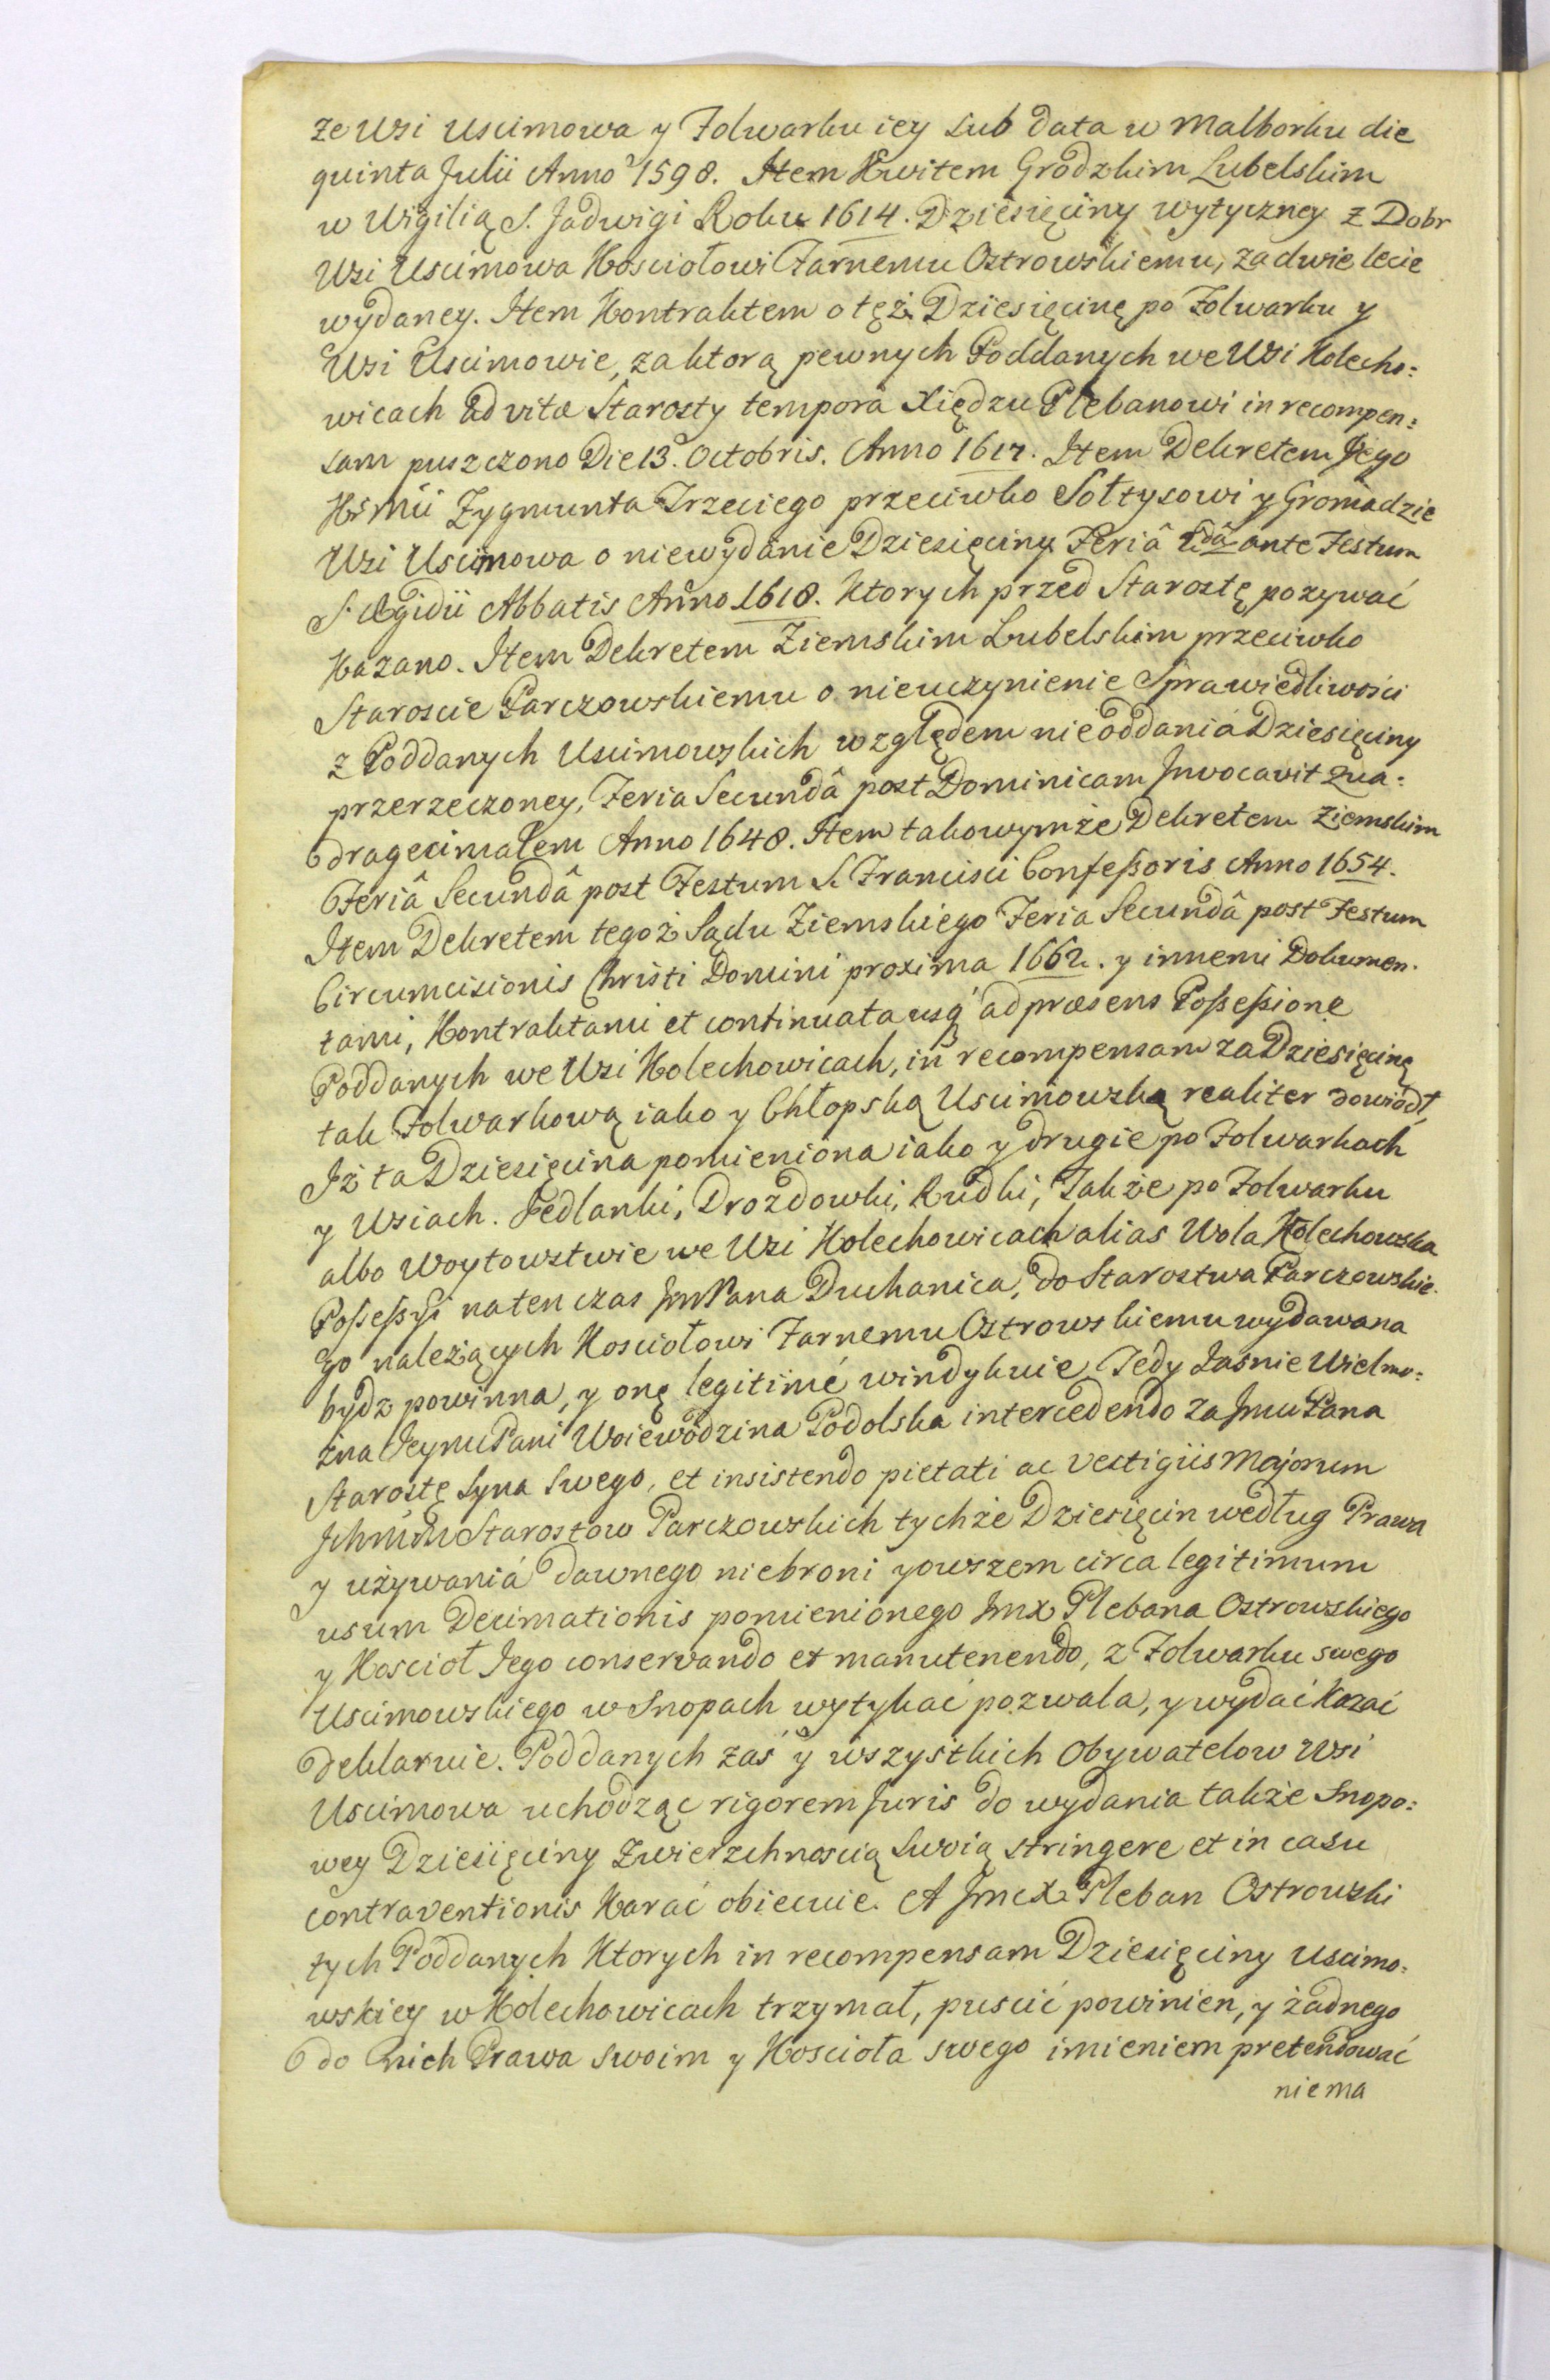 ze Wsi Uscimowa y Folwarku iey Sub data w Malborku die
quinta Julii Anno 1598. Item Kwitem Grodzkim Lubelskim
w Wigilią S. Jadwigi Roku 1614. Dziesięciny wytyczney z Dobr
Wsi Uscimowa Kosciołowi Farnemu Ostrowskiemu, za dwie lecie
wydaney. Item Kontraktem o tęż Dziesięcinę po Folwarku y
Wsi Uscimowie, za ktorą pewnych Poddanych we Wsi Kolecho:
wicach ad vitæ Starosty tempora Xiędzu Plebanowi in recompen:
sam puszczono Die 13. Octobris. Anno 1617. Item Dekretem Jego
Kr Mci Zygmunta Trzeciego przeciwko Sołtysowi y Gromadzie
Wsi Uscimowa o niewydanie Dziesięciny Feriâ 2dâ ante Festum
S. Ægidii Abbatis Anno 1618. Ktorych przed Starostę pozywać
Kazano. Item Dekretem Ziemskim Lubelskim przeciwko
Staroscie Parczowskiemu o nieuczynienie Sprawiedliwości
z Poddanych Uscimowskich względem nieoddania Dziesięciny
przerzeczoney, Feria Secundâ post Dominicam Invocavit Qua:
dragecimalem Anno 1648. Item takowymże Dekretem Ziemskim
Feriâ Secundâ post Festum S. Francisci Confeßoris Anno 1654.
Item Dekretem tegoż Sądu Ziemskiego Feria Secundâ post Festum
Circumcisionis Christi Domini proxima 1662. y innemi Dokumen.
tami, Kontraktami et continuata usq ad præsens Poßeßione
Poddanych we Wsi Kolechowicach, in recompensam za Dziesięcinę
tak Folwarkową iako y Chłopską Uscimowską realiter dowiodł,
Iż ta Dziesięcina pomieniona iako y drugie po Folwarkach
y Wsiach. Jedlanki, Drozdowki, Rudki, Także po Folwarku
albo Woytowstwie we Wsi Kolechowicach alias Wola Kolechowska
Poßeßyi naten czas Jm Pana Duchanica, do Starostwa Parczowskie.
go należących Kosciołowi Farnemu Ostrowskiemu wydawana
bydz powinna, y onę legitimé windykuie. Tedy Jasnie Wielmo:
żna Jeymci Pani Woiewodzina Podolska intercedendo za Jmci Pana
Starostę Syna Swego, et insistendo pietati ac vestigiis Majorum
Jchmciow Starostow Parczowskich tychże Dziesięcin według Prawa
y używania dawnego niebroni y owszem circa legitimum
usum Decimationis pomienionego Jmx Plebana Ostrowskiego
y Kosciół Jego conservando et manutenendo, z Folwarku swego
Uscimowskiego w Snopach wytykać pozwala, y wydać Kazać
deklaruie. Poddanych zaś y wszystkich Obywatelow Wsi
Uscimowa uchodząc rigorem Juris do wydania także Snopo:
wey Dziesięciny Zwierzchnoscią Swoią stringere et in casu
contraventionis Karać obiecuie. A Jmcx Pleban Ostrowski
tych Poddanych Ktorych in recompensam Dziesięciny Uscimo:
wskiey w Kolechowicach trzymał, puscić powinien, y żadnego
do nich Prawa swoim y Koscioła swego imieniem pretendować
niema